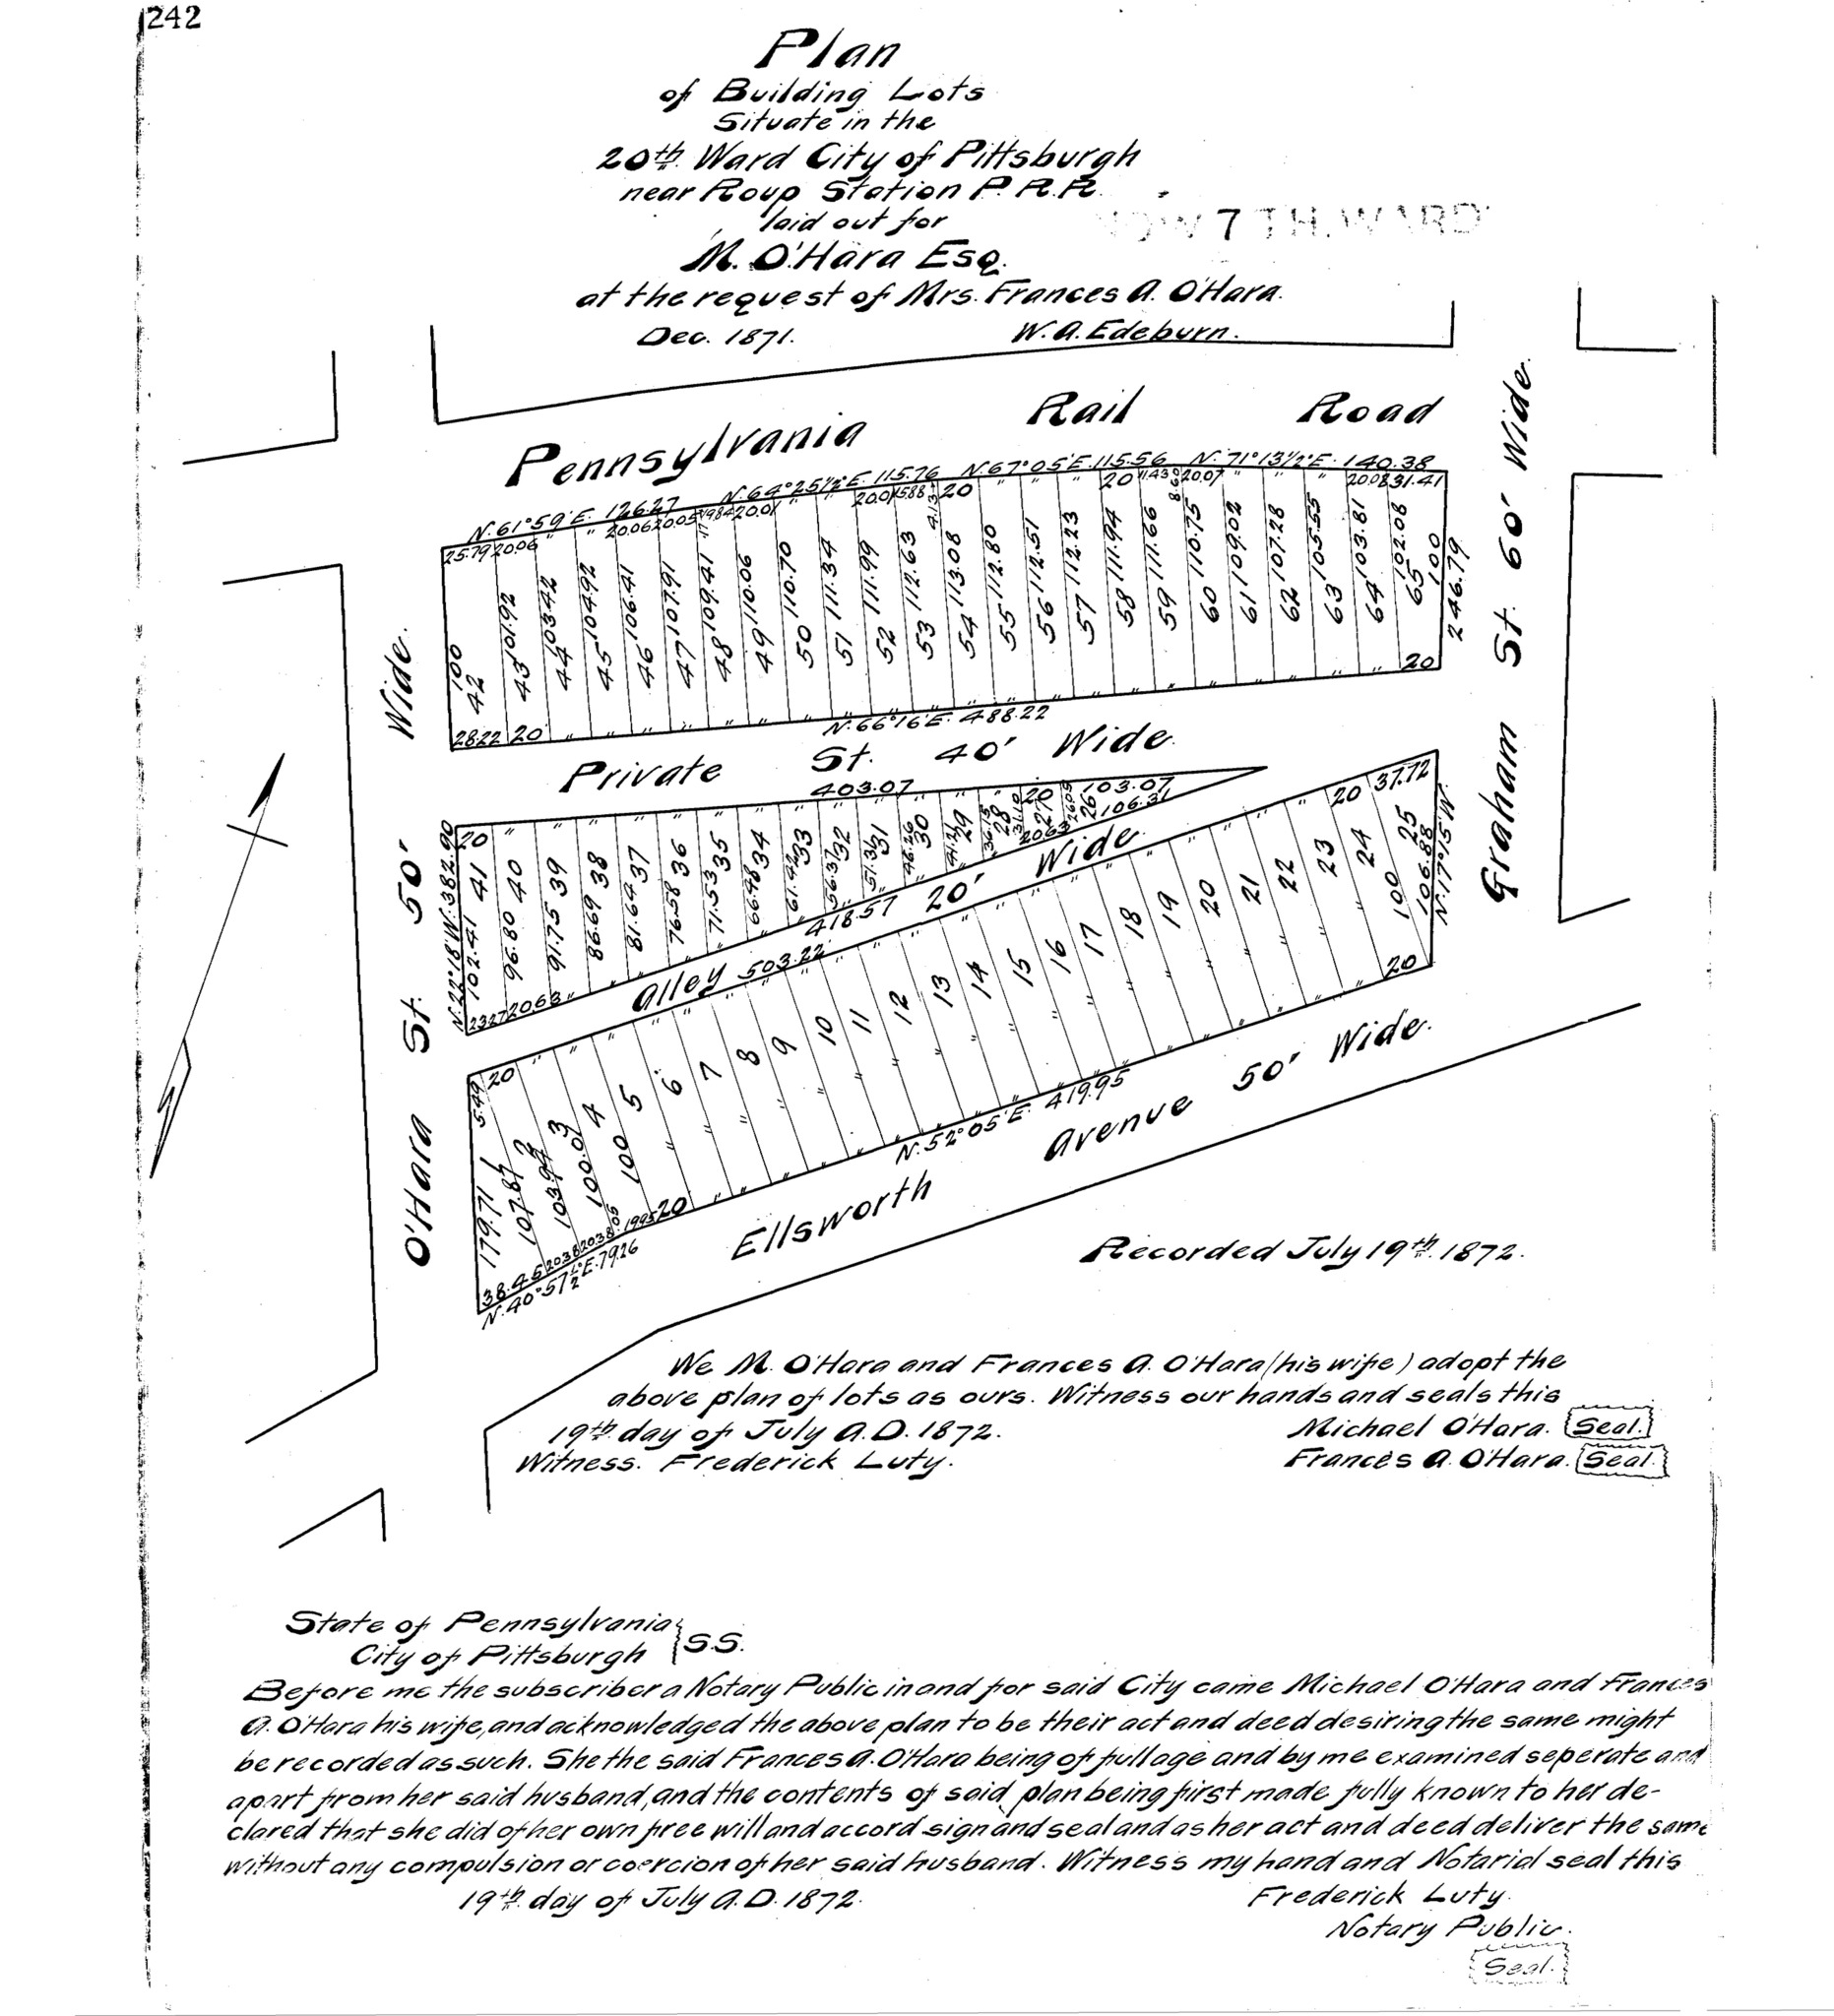 242
Plan
of Building Lots
Situate in the
20th. Ward City of Pittsburgh
near Roup Station P. R. R.
laid out for
NOW 7TH. WARD
M. O'Hara Esq.
at the request of Mrs. Frances A. O'Hara.
Dec. 1871. W. A. Edeburn.
Pennsylvania Rail Road
N. 61° 59' E. 126.27 N. 64° 25½' E. 115.76 N. 67° 05' E. 115.56 N. 71° 13½' E. 140.38
25.79 20.06 " " 20.06 20.05 19.84 20.01 " " 20.01 15.88 4.13 20 " " " 20 11.43 20.07 " " " 20.08 31.41
100 101.92 103.42 104.92 106.41 107.91 109.41 110.06 110.70 111.34 111.99 112.63 113.08 112.80 112.51 112.23 111.94 111.66 110.75 109.02 107.28 105.55 103.81 102.08 100
42 43 44 45 46 47 48 49 50 51 52 53 54 55 56 57 58 59 60 61 62 63 64 65
246.79
28.22 20 " " " " " " " " " " " " " " " " " " " " " 20
N. 66° 16' E. 488.22
Private St. 40' Wide.
403.07 103.07
20 " " " " " " " " " " " " " 20
41 40 39 38 37 36 35 34 33 32 31 30 29 28 27 26
102.41 96.80 91.75 86.69 81.64 76.58 71.53 66.48 61.42 56.37 51.31 46.26 41.21 36.15 31.10 26.05
N. 22° 18' W. 382.90
23.27 20.63 " " " " " " " " " " " " 20.63 106.31
418.57
Alley 20' Wide.
503.22
5.49 20 " " " " " " " " " " " " " " " " " " " " " 20 37.72
1 2 3 4 5 6 7 8 9 10 11 12 13 14 15 16 17 18 19 20 21 22 23 24 25
179.71 107.87 103.94 100.01 100 " " " " " " " " " " " " " " " " " " " 100 106.88
N. 17° 15' W.
38.45 20.38 20.38 .05 19.95 20 " " " " " " " " " " " " " " " " " " 20
N. 40° 57½' E. 79.26
N. 52° 05' E. 419.95
Ellsworth Avenue 50' Wide.
O'Hara St. 50' Wide.
Graham St. 60' Wide.
Recorded July 19th. 1872.
We M. O'Hara and Frances A. O'Hara (his wife) adopt the
above plan of lots as ours. Witness our hands and seals this
19th. day of July A.D. 1872. Michael O'Hara. Seal.
Witness. Frederick Luty. Frances A. O'Hara. Seal.
State of Pennsylvania
City of Pittsburgh } S.S.
Before me the subscriber a Notary Public in and for said City came Michael O'Hara and Frances
A. O'Hara his wife, and acknowledged the above plan to be their act and deed desiring the same might
be recorded as such. She the said Frances A. O'Hara being of full age and by me examined seperate and
apart from her said husband, and the contents of said plan being first made fully known to her de-
clared that she did of her own free will and accord sign and seal and as her act and deed deliver the same
without any compulsion or coercion of her said husband. Witness my hand and Notarial seal this
19th. day of July A.D. 1872. Frederick Luty.
Notary Public.
Seal.